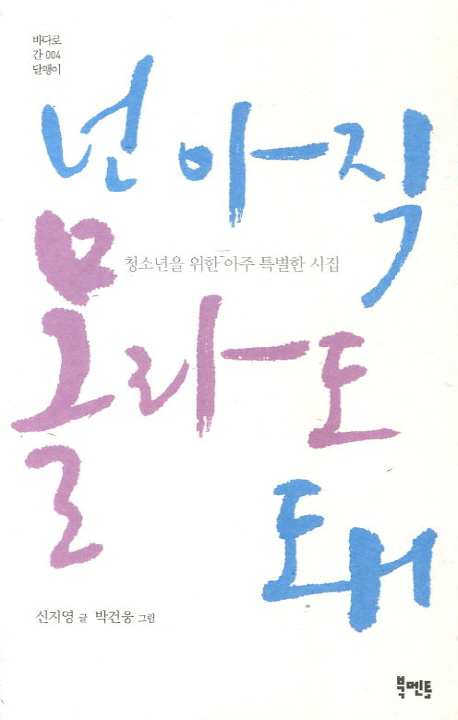 바다로
간 004
달팽이
넌 아직
청소년을 위한 아주 특별한 시집
몰라도
돼
신지영 글 박건웅 그림
북멘토